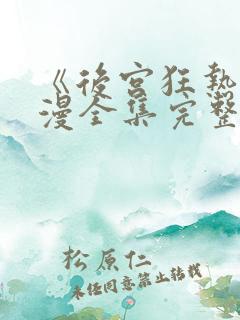 《後宮狂熱
漫全集完整
松原仁
未經同意禁止轉載